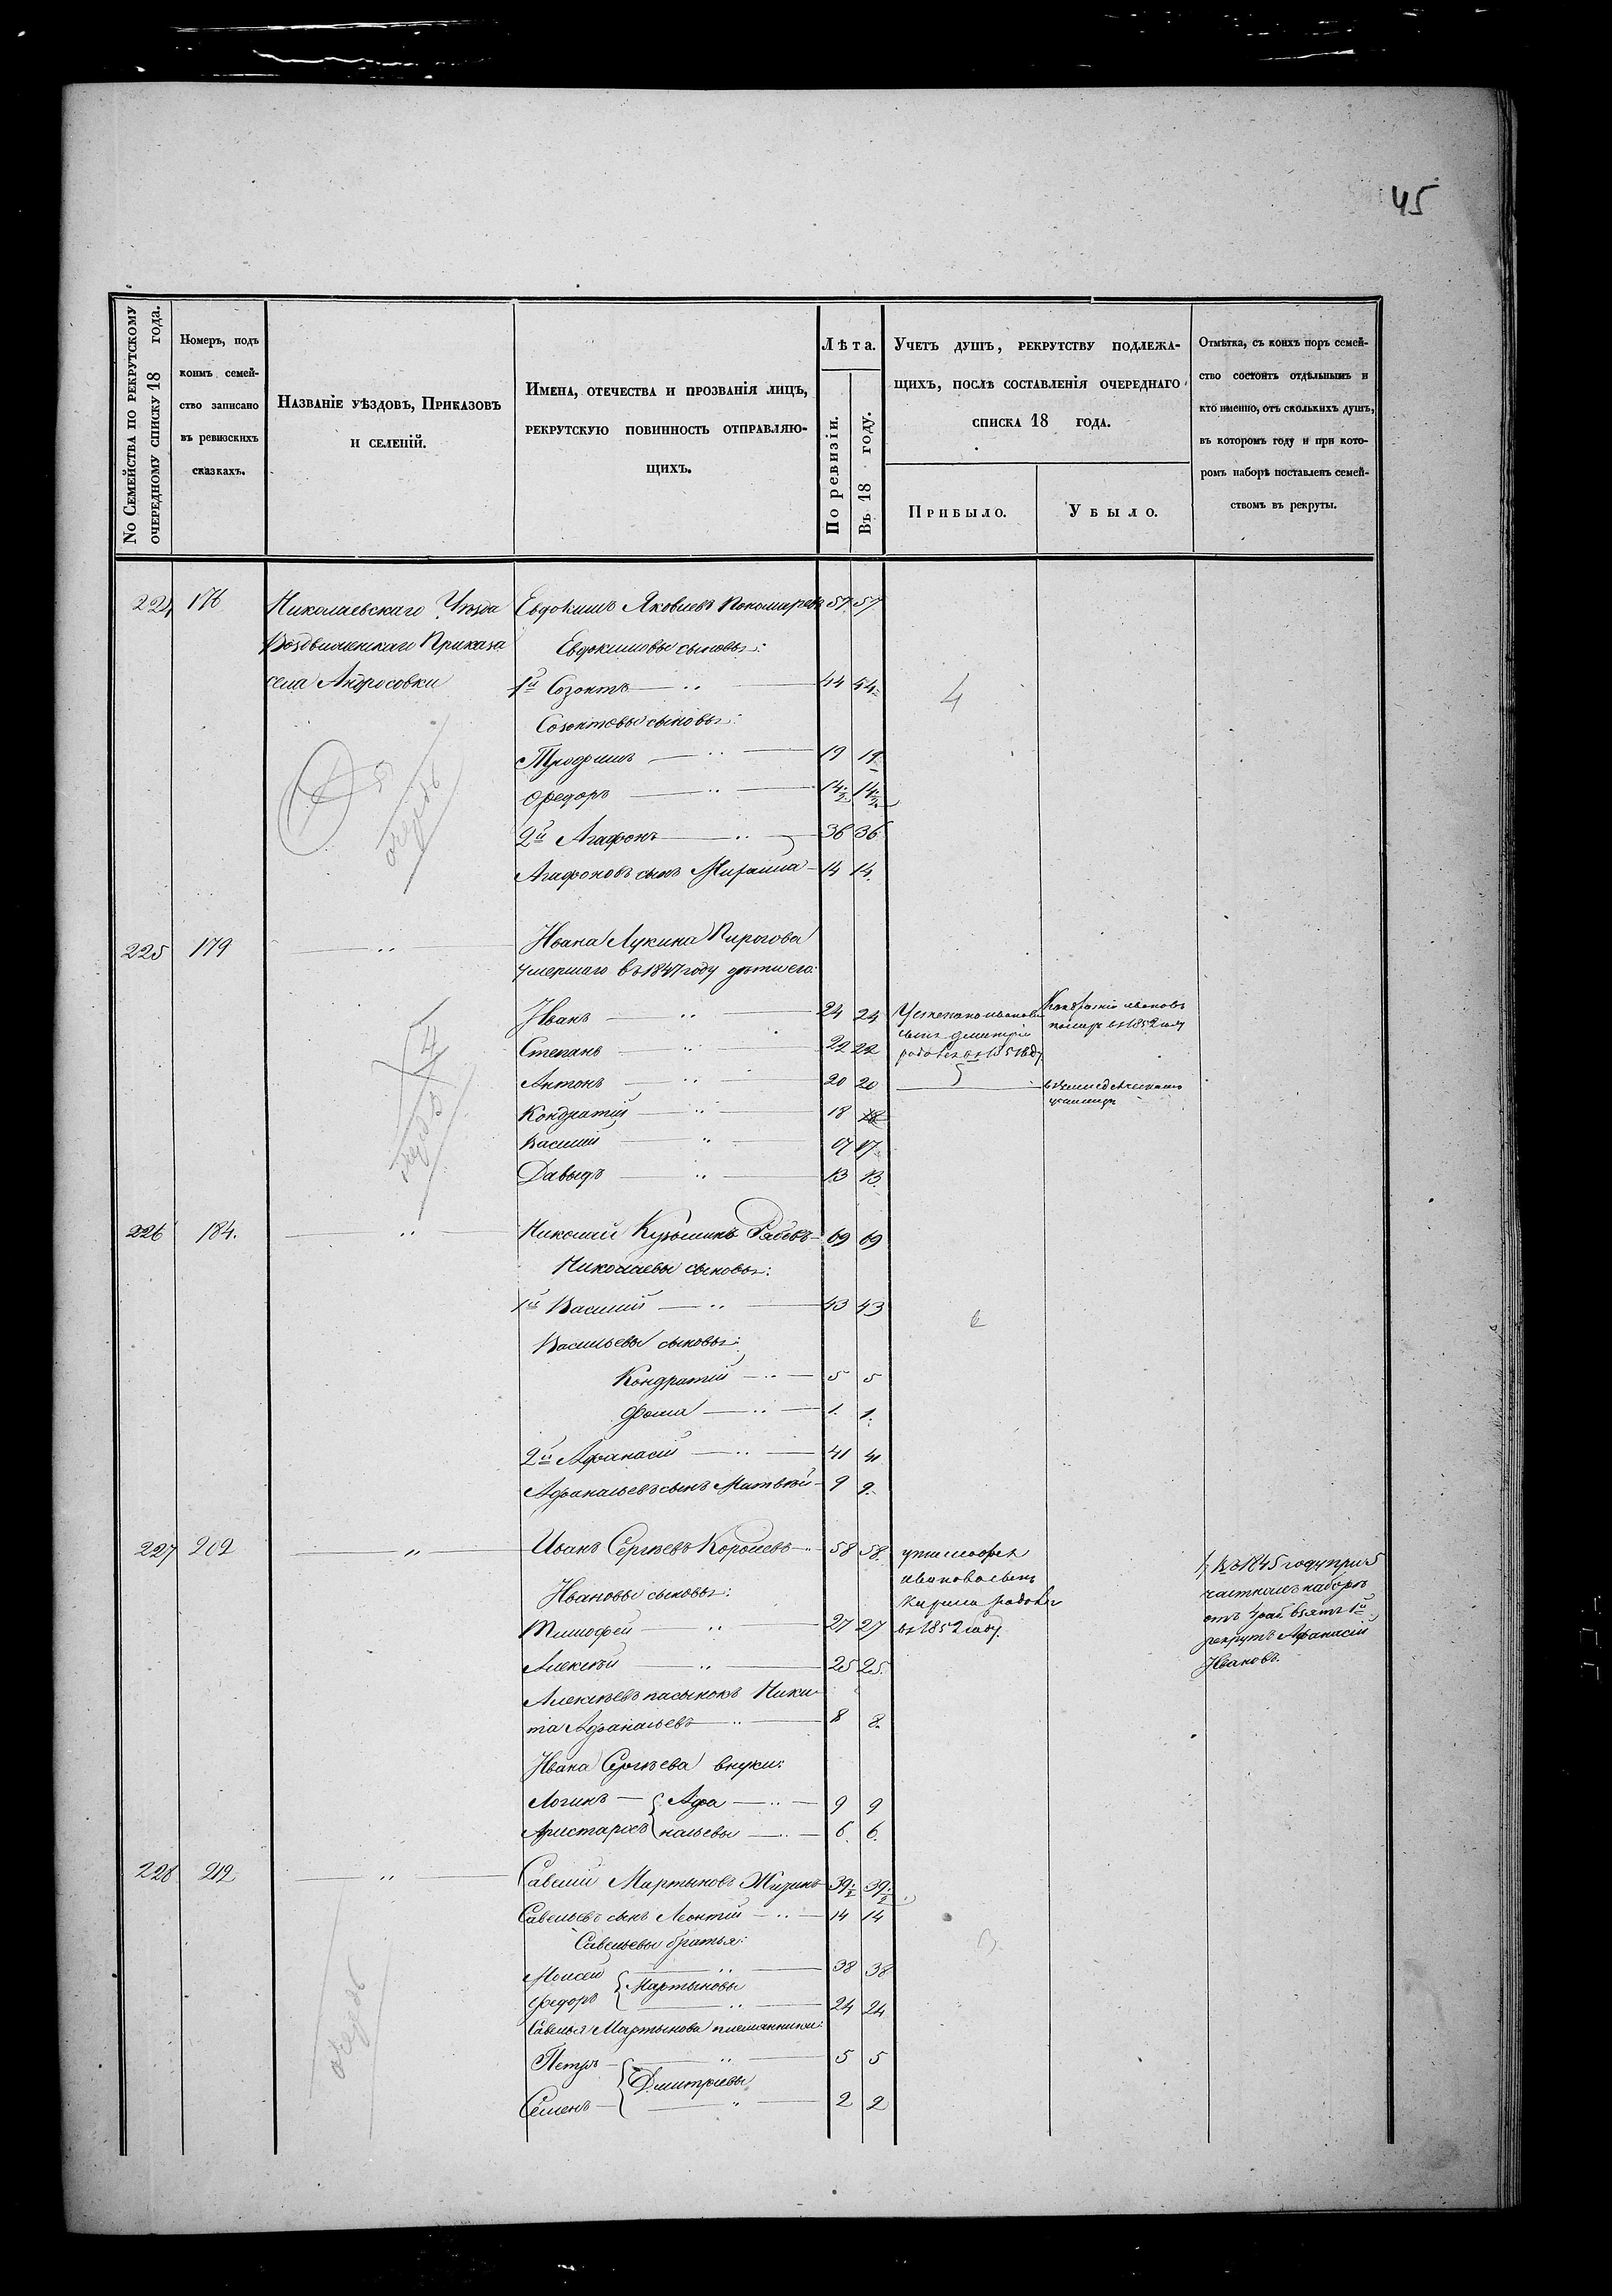 45
No Семейства по рекрутскому очередному списку 18 года.
Номеръ, подъ коимъ семейство записано въ ревизскихъ сказкахъ.
Названіе уѣздовъ, Приказовъ и селеній.
Имена, отечества и прозванія лицъ, рекрутскую повинность отправляющихъ.
Лѣта.
По ревизіи.
Въ 18 году.
Учетъ душъ, рекрутству подлежащихъ, послѣ составленія очереднаго списка 18 года.
Прибыло.
Убыло.
Отмѣтка, съ коихъ поръ семейство состоитъ отдѣльнымъ и кто именно, отъ сколькихъ душъ, въ которомъ году и при которомъ наборѣ поставленъ семействомъ въ рекруты.
224 176 Николаевскаго Уѣзда Евдокимъ Яковлевъ Пономаревъ 57 57
Воздвиженскаго Приказа Евдокимовы сыновья:
села Андросовки 1й Созонтъ — „ — 44 44
4
Созонтовы сыновья:
Трофимъ — „ — 19 19
Федоръ — „ — 14 1/2 14 1/2
очередь
2й Агафонъ — „ — 36 36
Агафоновъ сынъ Михайла 14 14
225 179 — „ — Ивана Лукина Пирогова
умершаго въ 1847 году дѣти его:
Иванъ — „ — 24 24 У степана иванова Кондратий ивановъ
сынъ дмитрій помер въ 1852 году
Степанъ — „ — 22 22 родовся въ 1851 году
4
Антонъ — „ — 20 20 5
очередь
Кондратій — „ — 18 18
Василій — „ — 17 17
Давыдъ — „ — 13 13
226 184. — „ — Николай Кузьминъ Рябовъ 69 69
Николаевы сыновья:
1й Василій — „ — 43 43
6
Васильевы сыновья:
Кондратій — „ — 5 5
Фома — „ — 1. 1.
2й Афанасій — „ — 41 41
Афанасьевъ сынъ Матвѣй 9 9.
227 202 — „ — Иванъ Сергѣевъ Королевъ 58 58 у тимофея
иванова сынъ
Ивановы сыновья:
Кирила родовся
Тимофей — „ — 27 27 въ 1852 году.
1, Въ 1845 году при 5
частномъ наборѣ
отъ
взятъ 1й
рекрутъ Афанасій
Ивановъ.
Алексѣй — „ — 25 25
Алексѣевъ пасынокъ Ники-
та Афанасьевъ — „ — 8 8.
Ивана Сергѣева внуки:
Логинъ — { Афа — „ — 9 9
Аристархъ { насьевы — „ — 6. 6.
228 212 — „ — Савелій Мартыновъ Жизинъ 39 1/2 39 1/2
Савельевъ сынъ Леонтій — „ — 14 14
Савельевы братья:
3.
Моисей { — „ — 38 38
Мартыновы
Федоръ { — „ — 24 24
Савелья Мартынова племянники:
очередь
Петръ { — „ — 5 5
Дмитріевы
Семенъ { — „ — 2 2